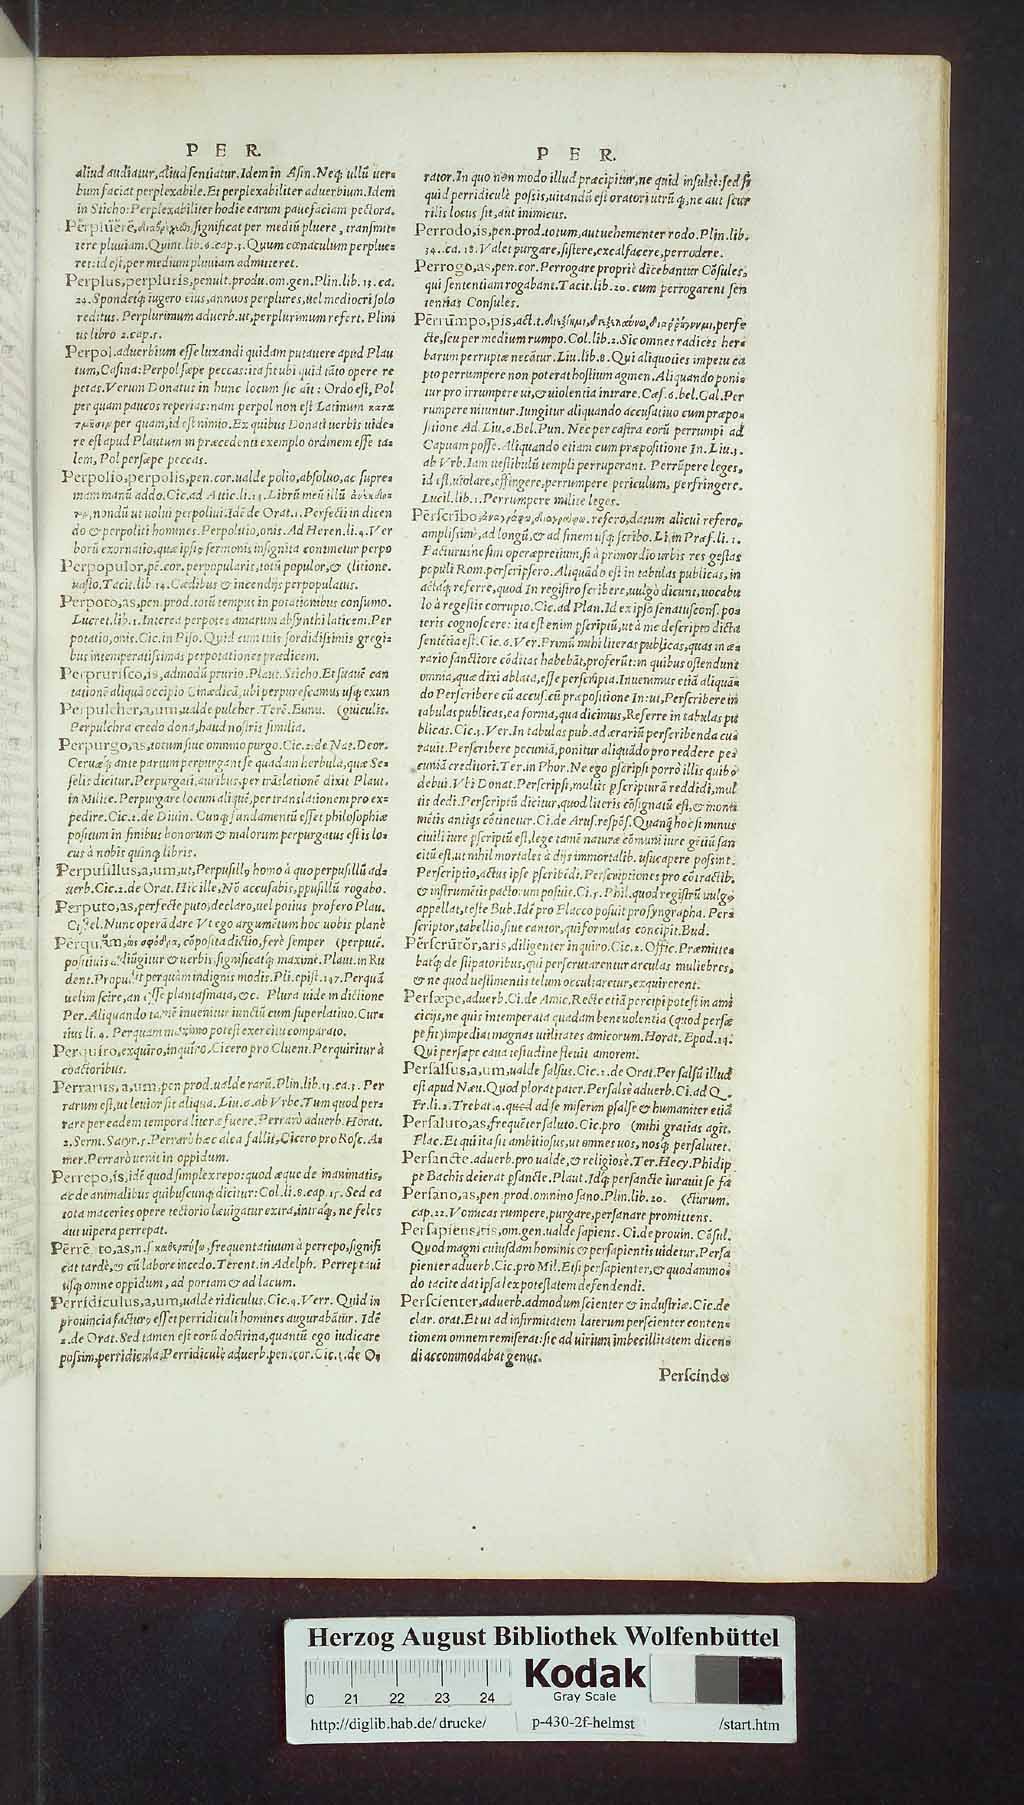 P E R.
aliud audiatur, aliud sentiatur. Idem in Asin. Neq; ullũ uer-
bum faciat perplexabile. Et perplexabiliter aduerbium. Idem
in Sticho: Perplexabiliter hodie earum pauefaciam pectora.
Perpluere, significat per mediũ pluere, transmit-
tere pluuiam. Quint. lib. 6. cap. 3. Quum cœnaculum perplue-
ret: id est, per medium pluuiam admitteret.
Perplus, perpluris, penult. produ. om. gen. Plin. lib. 15. ca.
24. Spondetq; iugero eius, annuos perplures, uel mediocri solo
reditus. Perplurimum aduerb. ut, perplurimum refert. Plini
us libro 2. cap. 5.
Perpol. aduerbium esse luxandi quidam putauere apud Plau
tum, Casina: Perpol sæpe peccas: ita fit ubi quid tãto opere re
petas. Verum Donatus in hunc locum sic ait: Ordo est, Pol
per quam paucos reperias: nam perpol non est Latinum κατὰ
τμῆσιν per quam, id est nimio. Ex quibus Donati uerbis uide-
re est apud Plautum in præcedenti exemplo ordinem esse ta-
lem, Pol persæpe peccas.
Perpolio, perpolis, pen. cor. ualde polio, absoluo, ac supre-
mam manũ addo. Cic. ad Attic. li. 14. Librũ meũ illũ ἀνέκδο-
τον, nondũ ut uolui perpoliui. Idẽ de Orat. 1. Perfecti in dicen
do & perpoliti homines. Perpolitio, onis. Ad Heren. li. 4. Ver
borũ exornatio, quæ ipsiꝰ sermonis insignita continetur perpo
Perpopulor, pẽ. cor. perpopularis, totũ populor, & (litione.
uasto. Tacit. lib 14. Cædibus & incendijs perpopulatus.
Perpoto, as, pen. prod. totũ tempus in potationibus consumo.
Lucret. lib. 1. Interea perpotet amarum absynthi laticem. Per
potatio, onis. Cic. in Piso. Quid cum tuis sordidissimis gregi-
bus intemperatissimas perpotationes prædicem.
Perprurisco, is, admodũ prurio. Plaut. Sticho. Et suauẽ can
tationẽ aliquã occipio Cinædicã, ubi perpruriscamus usq; exun
Perpulcher, a, um, ualde pulcher. Terẽ. Eunu. (guiculis.
Perpulchra credo dona, haud nostris similia.
Perpurgo, as, totum siue omnino purgo. Cic. 2. de Nat. Deor.
Ceruæ q; ante partum perpurgant se quadam herbula, quæ Se-
selis dicitur. Perpurgati, auribus, per trãslationẽ dixit Plaut.
in Milite. Perpurgare locum aliquẽ, per translationem pro ex-
pedire. Cic. 2. de Diuin. Cunq; fundamentũ esset philosophiæ
positum in finibus bonorum & malorum perpurgatus est is lo-
cus à nobis quinq; libris.
Perpusillus, a, um, ut, Perpusillꝰ homo à quo perpusillũ ad-
uerb. Cic. 2. de Orat. Hic ille, Nõ accusabis, ppusillũ rogabo.
Perputo, as, perfecte puto, declaro, uel potius profero Plau.
Cistel. Nunc operã dare Vt ego argumẽtum hoc uobis planè
Perquam, ὡς σφόδρα, cõposita dictio, ferè semper (perputẽ.
positiuis adiũgitur & uerbis, significatq; maximè. Plaut. in Ru
dent. Propulit perquam indignis modis. Pli. epist. 147. Perquã
uelim scire, an esse plantasmata, &c. Plura uide in dictione
Per. Aliquando tamẽ inuenitur iunctũ cum superlatiuo. Cur-
tius li. 4. Perquam maximo potest exercitu comparato.
Perquiro, exquiro, inquiro. Cicero pro Cluent. Perquiritur à
coactoribus.
Perrarus, a, um, pen prod. ualde rarũ. Plin. lib. 15. ca. 3. Per
rarum est, ut leuior sit aliqua. Liu. 6. ab Vrbe. Tum quod per-
raræ per eadem tempora literæ fuere. Perrarò aduerb. Horat.
2. Serm. Satyr. 5. Perrarò hæc alea fallit, Cicero pro Rosc. A-
mer. Perrarò uenit in oppidum.
Perrepo, is, idẽ quod simplex repo: quod æque de inanimatis,
ac de animalibus quibuscunq; dicitur: Col. li. 8. cap. 15. Sed ea
tota maceries opere tectorio læuigatur extra, intraq;, ne feles
aut uipera perrepat.
Perrepto, as, n. s. καθερπύζω, frequentatiuum à perrepo, signifi
cat tardè, & cũ labore incedo. Terent. in Adelph. Perreptaui
usq; omne oppidum, ad portam & ad lacum.
Perridiculus, a, um, ualde ridiculus. Cic. 4. Verr. Quid in
prouincia facturꝰ esset perridiculi homines augurabãtur. Idẽ
2. de Orat. Sed tamen est eorũ doctrina, quantũ ego iudicare
possim, perridicula: Perridiculè aduerb. pen. cor. Cic. 3. de O-
P E R.
rator. In quo non modo illud præcipitur, ne quid insulsè: sed si
quid perridiculè possis, uitandũ est oratori utrũ q;, ne aut scur
rilis locus sit, aut inimicus.
Perrodo, is, pen. prod. totum, aut uehementer rodo. Plin. lib.
34. ca. 18. Valet purgare, sistere, excalfacere, perrodere.
Perrogo, as, pen. cor. Perrogare propriè dicebantur Cõsules,
qui sententiam rogabant. Tacit. lib. 20. cum perrogarent sen
tentias Consules.
Perrumpo, pis, act. t. perfe
ctè, seu per medium rumpo. Col. lib. 2. Sic omnes radices her-
barum perruptæ necãtur. Liu. lib. 8. Qui aliquoties impetu ca
pto perrumpere non poterat hostium agmen. Aliquando poni-
tur pro irrumpere ui, & uiolentia intrare. Cæs. 6. bel. Gal. Per
rumpere nituntur. Iungitur aliquando accusatiuo cum præpo-
sitione Ad. Liu. 6. Bel. Pun. Nec per castra eorũ perrumpi ad
Capuam posse. Aliquando etiam cum præpositione In. Liu. 3.
ab Vrb. Iam uestibulũ templi perruperant. Perrũpere leges,
id est, uiolare, effingere, perrumpere periculum, perfringere.
Lucil. lib. 1. Perrumpere milite leges.
Perscribo, ἀναγράφω, διαγράφω. refero, datum alicui refero,
amplissimè, ad longũ, & ad finem usq; scribo. Li. in Præf. li. 1.
Facturus ne sim operæpretium, si à primordio urbis res gestas
populi Rom. perscripsero. Aliquãdo est in tabulas publicas, in
actaq; referre, quod In registro scribere, uulgò dicunt, uocabu
lo à regestis corrupto. Cic. ad Plan. Id ex ipso senatuscons. po-
teris cognoscere: ita est enim pscriptũ, ut à me descripto dicta
sentẽtia est. Cic. 6. Ver. Primũ mihi literas publicas, quas in æ-
rario sanctiore cõditas habebãt, proferũt: in quibus ostendunt
omnia, quæ dixi ablata, esse perscripta. Inuenimus etiã aliquã-
do Perscribere cũ accus. cũ præpositione In: ut, Perscribere in
tabulas publicas, ea forma, qua dicimus, Referre in tabulas pu
blicas. Cic. 5. Ver. In tabulas pub. ad ærariũ perscribenda cu-
rauit. Perscribere pecuniã, ponitur aliquãdo pro reddere pe-
cuniã creditori. Ter. in Phor. Ne ego pscripsi porrò illis quibꝰ
debui. Vbi Donat. Perscripsi, multis pscripturã reddidi, mul
tis dedi. Perscriptũ dicitur, quod literis cõsignatũ est, & monu
mẽtis antiqs cõtinetur. Ci. de Arus. respõs. Quanq; hoc si minus
ciuili iure pscriptũ est, lege tamẽ naturæ cõmuni iure gẽtiũ san
citũ est, ut nihil mortales à dijs immortalib. usucapere possint.
Perscriptio, actus ipse pscribẽdi. Perscriptiones pro cõtractib.
& instrumẽtis pactorum posuit. Ci. 5. Phil. quod registrũ uulgꝰ
appellat, teste Bud. Idẽ pro Flacco posuit pro syngrapha. Per-
scriptor, tabellio, siue cantor, qui formulas concipit. Bud.
Perscrutor, aris, diligenter inquiro. Cic. 2. Offic. Præmitte-
batq; de stipatoribus, qui perscrutarentur arculas muliebres,
& ne quod uestimentis telum occultaretur, exquirerent.
Persæpe, aduerb. Ci. de Amic. Rectè etiã percipi potest in ami
cicijs, ne quis intemperata quædam beneuolentia (quod persæ
pe fit) impediat magnas utilitates amicorum. Horat. Epod. 14.
Qui persæpe caua testudine fleuit amorem.
Persalsus, a, um, ualde salsus. Cic. 2. de Orat. Persalsũ illud
est apud Næu. Quod plorat pater. Persalsè aduerb. Ci. ad Q.
Fr. li. 2. Trebat. 4. quod ad se miserim psalsè & humaniter etiã
Persaluto, as, frequẽter saluto. Cic. pro (mihi gratias agit.
Flac. Et qui ita sit ambitiosus, ut omnes uos, nosq; persalutet.
Persancte. aduerb. pro ualde, & religiosè. Ter. Hecy. Phidip
pe Bachis deierat psanctè. Plaut. Idq; persanctè iurauit se fa
Persano, as, pen. prod. omnino sano. Plin. lib. 20. (cturum.
cap. 22. Vomicas rumpere, purgare, persanare promittens.
Persapiens, tis, om. gen. ualde sapiens. Ci. de prouin. Cõsul.
Quod magni cuiusdam hominis & persapientis uidetur. Persa
pienter aduerb. Cic. pro Mil. Etsi persapienter, & quodammo-
do tacitè dat ipsa lex potestatem defendendi.
Perscienter, aduerb. admodum scienter & industriæ. Cic. de
clar. orat. Et ut ad infirmitatem laterum perscienter conten-
tionem omnem remiserat: sic ad uirium imbecillitatem dicen-
di accommodabat genus.
Perscindo
Herzog August Bibliothek Wolfenbüttel
0 21 22 23 24
Kodak
Gray Scale
http://diglib.hab.de/drucke/ p-430-2f-helmst /start.htm